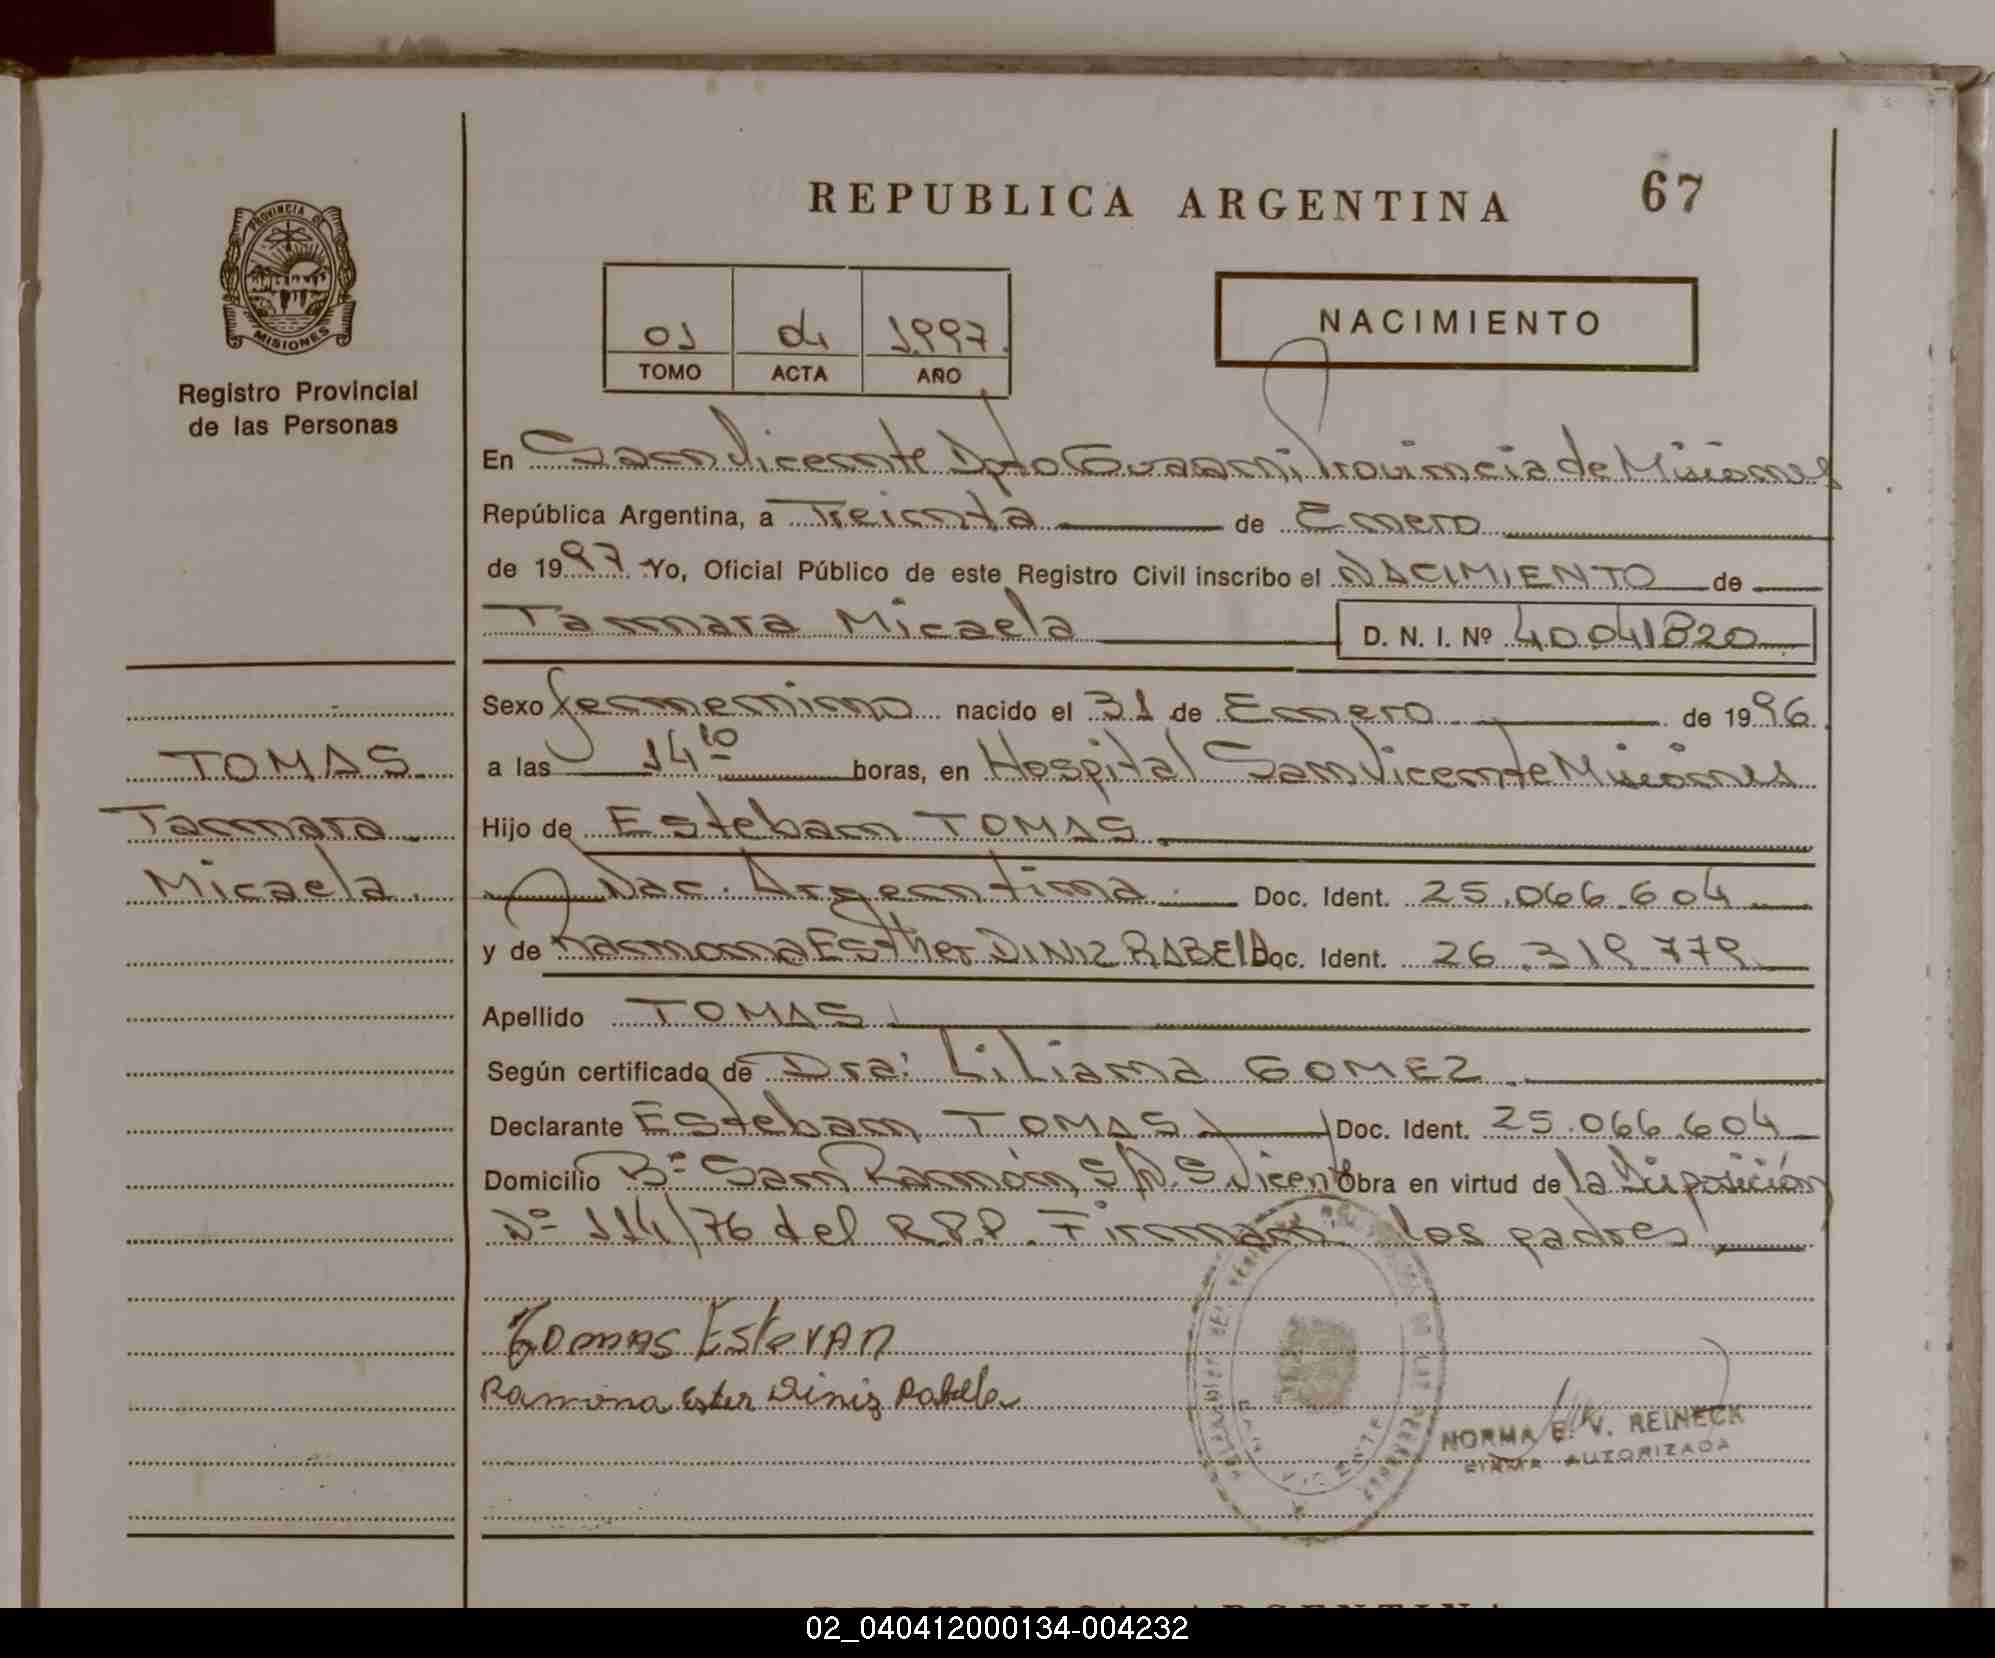 REPUBLICA ARGENTINA
67
PROVINCIA DE
MISIONES
Registro Provincial
de las Personas
01
1997.
TOMO
ACTA
AÑO
NACIMIENTO
En San Vicente Dpto Guaraní, Provincia de Misiones
República Argentina, a Treinta de Enero
de 1997 Yo, Oficial Público de este Registro Civil inscribo el NACIMIENTO de
Tamara Micaela
D. N. I. Nº 40.041820
Sexo femenino nacido el 31 de Enero de 1996.
a las 14 10 horas, en Hospital San Vicente Misiones
Hijo de Esteban TOMAS
Nac. Argentina. Doc. Ident. 25.066.604
y de Ramona Esther DINIZ RABELO Doc. Ident. 26.319.779
Apellido TOMAS
Según certificado de Dra: Liliana GOMEZ
Declarante Esteban TOMAS Doc. Ident. 25.066.604
Domicilio Bº San Ramón, S/N. S. Vicente Obra en virtud de la Disposición
Nº 114/76 del R.P.P. Firman: los padres
TOMAS
Tamara
Micaela.
Tomas Estevan
Ramona Ester Diniz Rabelo
SAN VICENTE
NORMA E. V. REINECK
FIRMA AUTORIZADA
REPUBLICA ARGENTINA
02_040412000134-004232